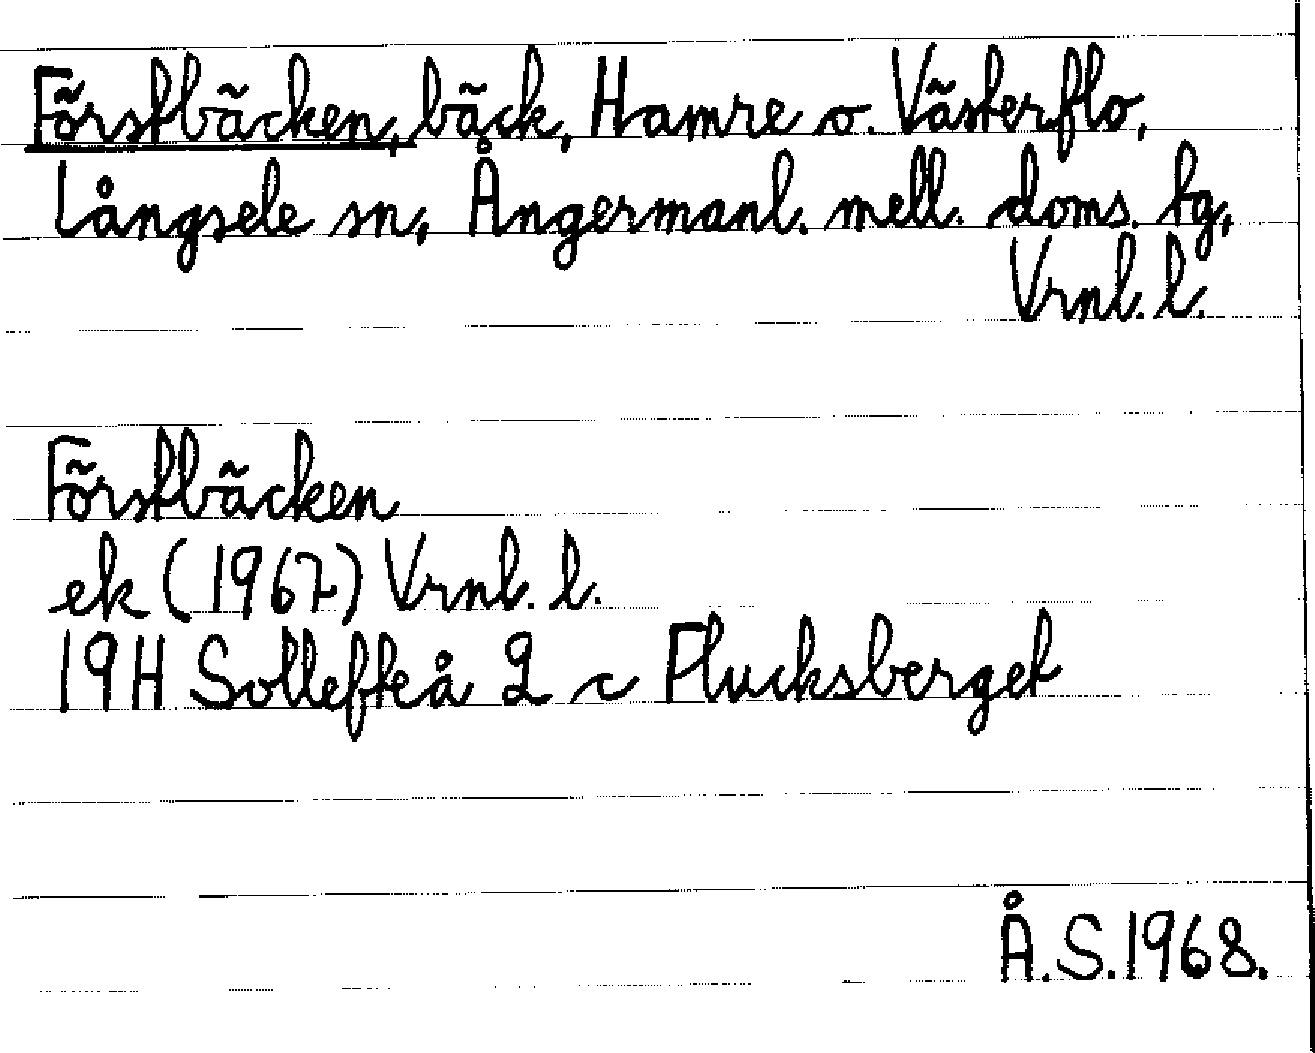 Förstbäcken, bäck, Hamre o. Västerflo,
Långsele sn, Ångermanl. mell. doms. tg,
Vrnl. l.
Förstbäcken
ek (1967) Vrnl. l.
19H Sollefteå 2 c Flucksberget
Å.S.1968.